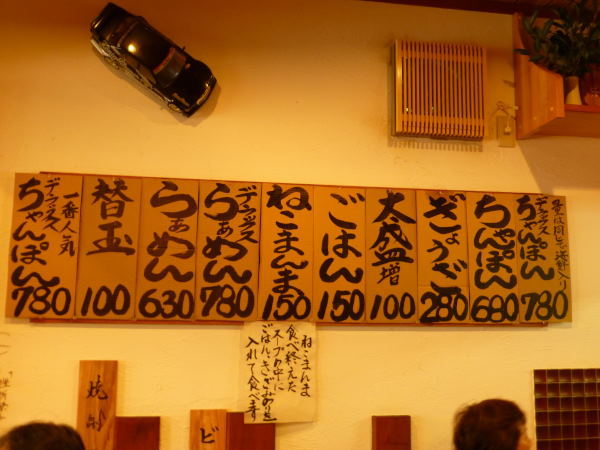 デラックス
ちゃんぽん
780
ちゃんぽん
680
ぎょうざ
280
大盛増
100
ごはん
150
ねこまんま
150
デラックス
らぁめん
780
らぁめん
630
替玉
100
一番人気
デラックス
ちゃんぽん
780
ねこまんま
食べ終えた
スープの中に
ごはん、きざみのりを
入れて食べます
焼酎
ビ